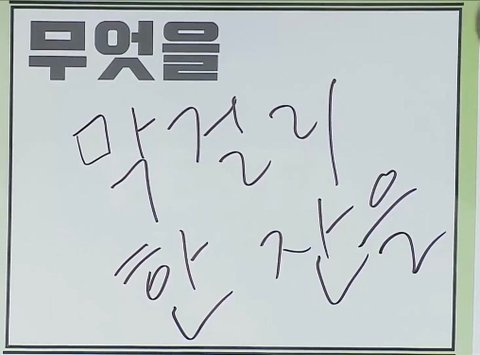 무엇을
막걸리
한 잔을